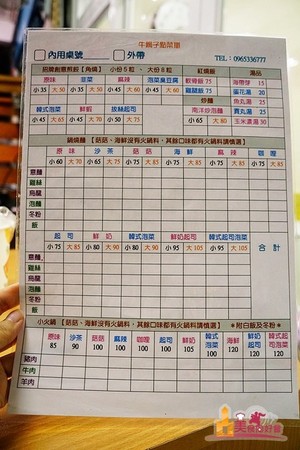 牛獅子點菜單
內用桌號 外帶 TEL：0965336777
胡蘭創意煎餃【角燒】 小份5粒、大份8粒 紅燒飯 湯品
原味 韭菜 麻辣 泡菜臭豆腐 軟骨飯 75 海帶芽 15
小35 大50 小35 大50 小35 大50 小45 大70 雞腿飯 75 蛋花湯 20
炒麵 魚丸湯 25
韓式泡菜 鮮蝦 拔絲起司 南洋炒泡麵 貢丸湯 25
小45 大65 小45 大70 小50 大75 小65 大85 玉米濃湯 30
鍋燒麵【菇菇、海鮮沒有火鍋料，其餘口味都沒有火鍋料請慎選】
原味 沙茶 菇菇 海鮮 麻辣 咖哩
小60 大70 小65 大75 小65 大75 小75 大85 小75 大85
意麵
雞絲
烏龍
泡麵
冬粉
飯
起司 鮮奶 韓式泡菜 鮮奶起司 韓式起司泡菜 合計
小75 大85 小80 大90 小80 大90 小95 大105 小95 大105
意麵
雞絲
烏龍
泡麵
冬粉
飯
小火鍋【菇菇、海鮮沒有火鍋料，其餘口味都沒有火鍋料請慎選】 *附白飯及冬粉*
原味 沙茶 菇菇 麻辣 咖哩 起司 鮮奶 韓式泡菜 海鮮 鮮奶起司 韓式起司泡菜
85 90 100 100 100 100 105 100 120 120 120
豬肉
牛肉
羊肉